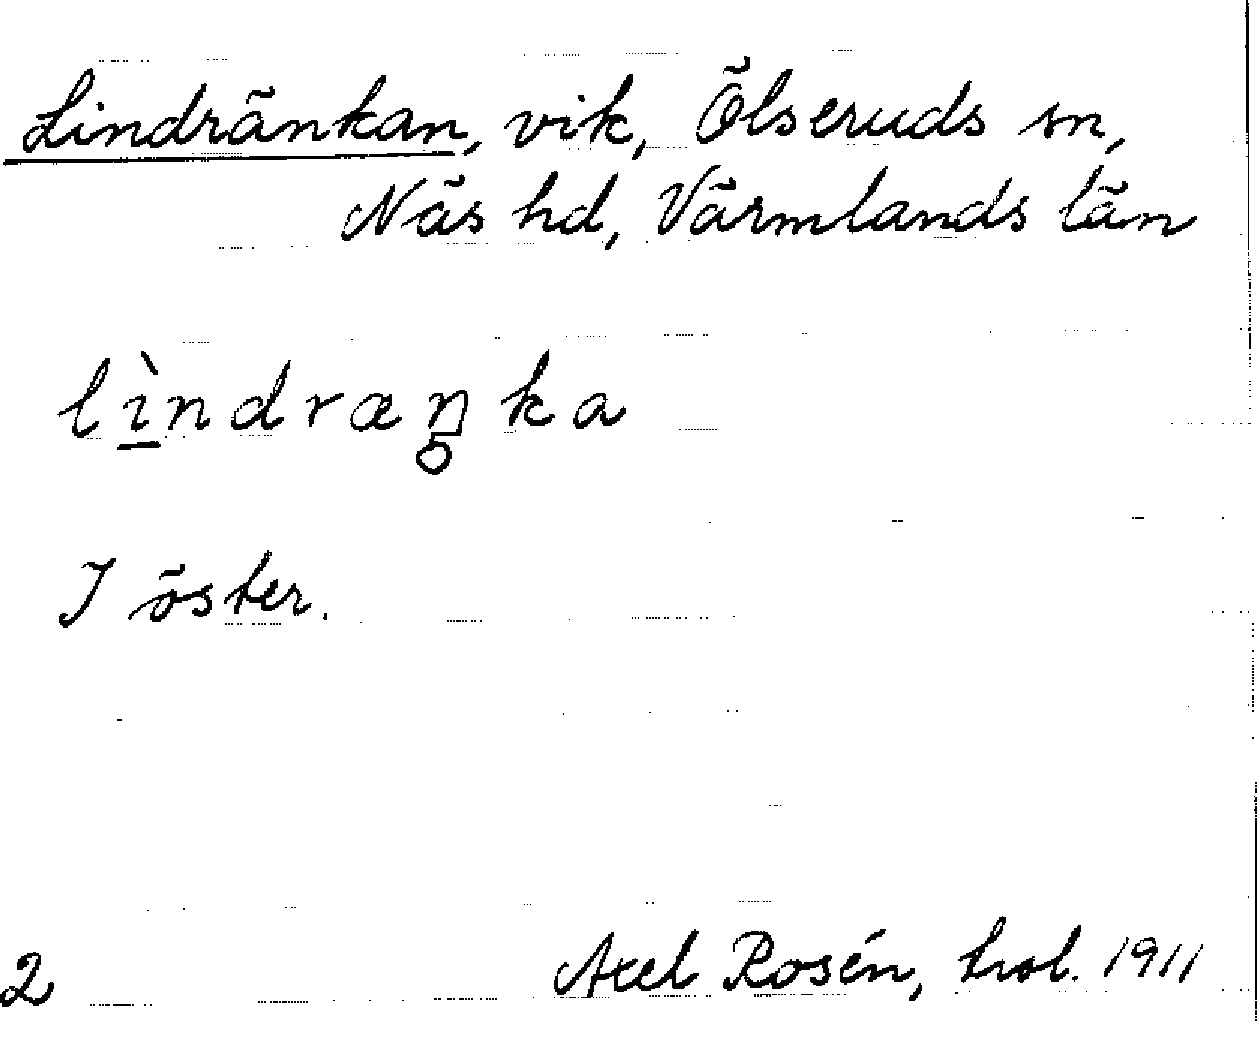 Lindränkan, vik, Ölseruds sn,
Näs hd, Värmlands län
lìndræŋka
I öster.
2 Axel Rosén, hol. 1911